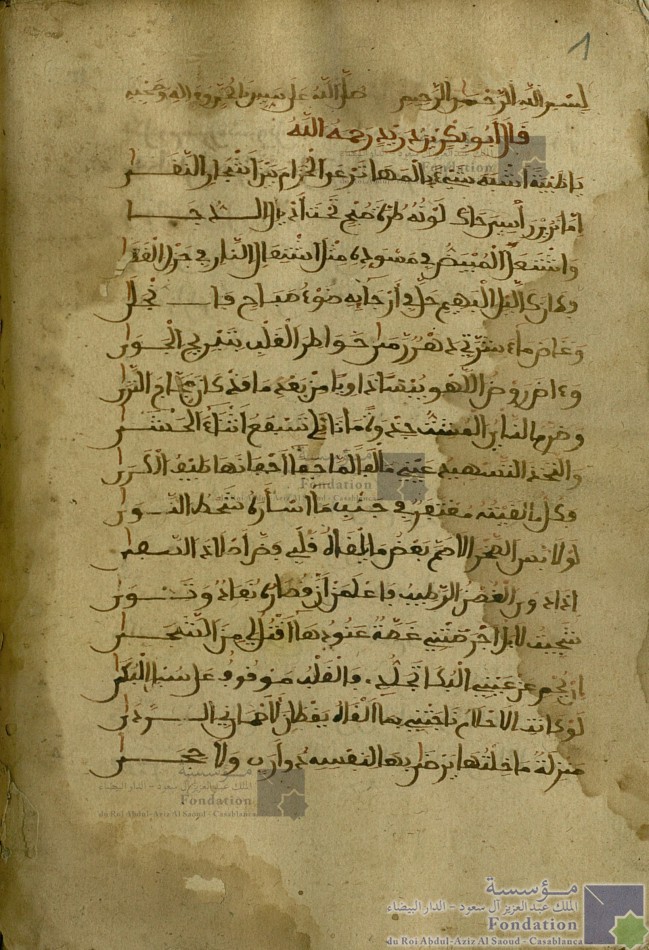 1
بسم الله الرحمن الرحيم صلى الله على سيدنا محمد وعلى اله وصحبه
قال أبو بكر بن دريد رحمه الله
يا ظبية أشبه شيء بالمها ترعى الخزام بين أشجار النقى
إما تري رأسي حاكى لونه طرة صبح تحت أذيال الدجا
واشتعل المبيض في مسوده مثل اشتعال النار في جزل الغضى
وكان كالليل البهيم حل في أرجائه ضوء صباح فانجلى
وغاض ماء شرتي دهر رمى خواطر القلب بتبريح الجوى
وءاض روض اللهو يبسا ذاويا من بعد ما قد كان مجاج الثرى
وضرم النأي المشت جذوة ما تأتلي تسفع أثناء الحشى
واتخذ التسهيد عيني مألفا لما جفا أجفانها طيف الكرى
وكل ما لقيته مغتفر في جنب ما أسأره شحط النوى
لو لابس الصخر الأصم بعض ما يلقاه قلبي فض أصلاد الصفى
إذا ذوى الغصن الرطيب فاعلمن أن قصاراه نفاد وتوى
شجيت لا بل أجرضتني غصة عنودها أقتل لي من الشجى
إن يحم عن عيني البكا تجلدي فالقلب موقوف على سبل البكى
لو كانت الأحلام ناجتني بما ألقاه يقظان لأصماني الردى
منزلة ما خلتها يرضى بها لنفسه ذو أرب ولا حجى
مؤسسة
الملك عبد العزيز آل سعود - الدار البيضاء
Fondation
du Roi Abdul-Aziz Al Saoud - Casablanca